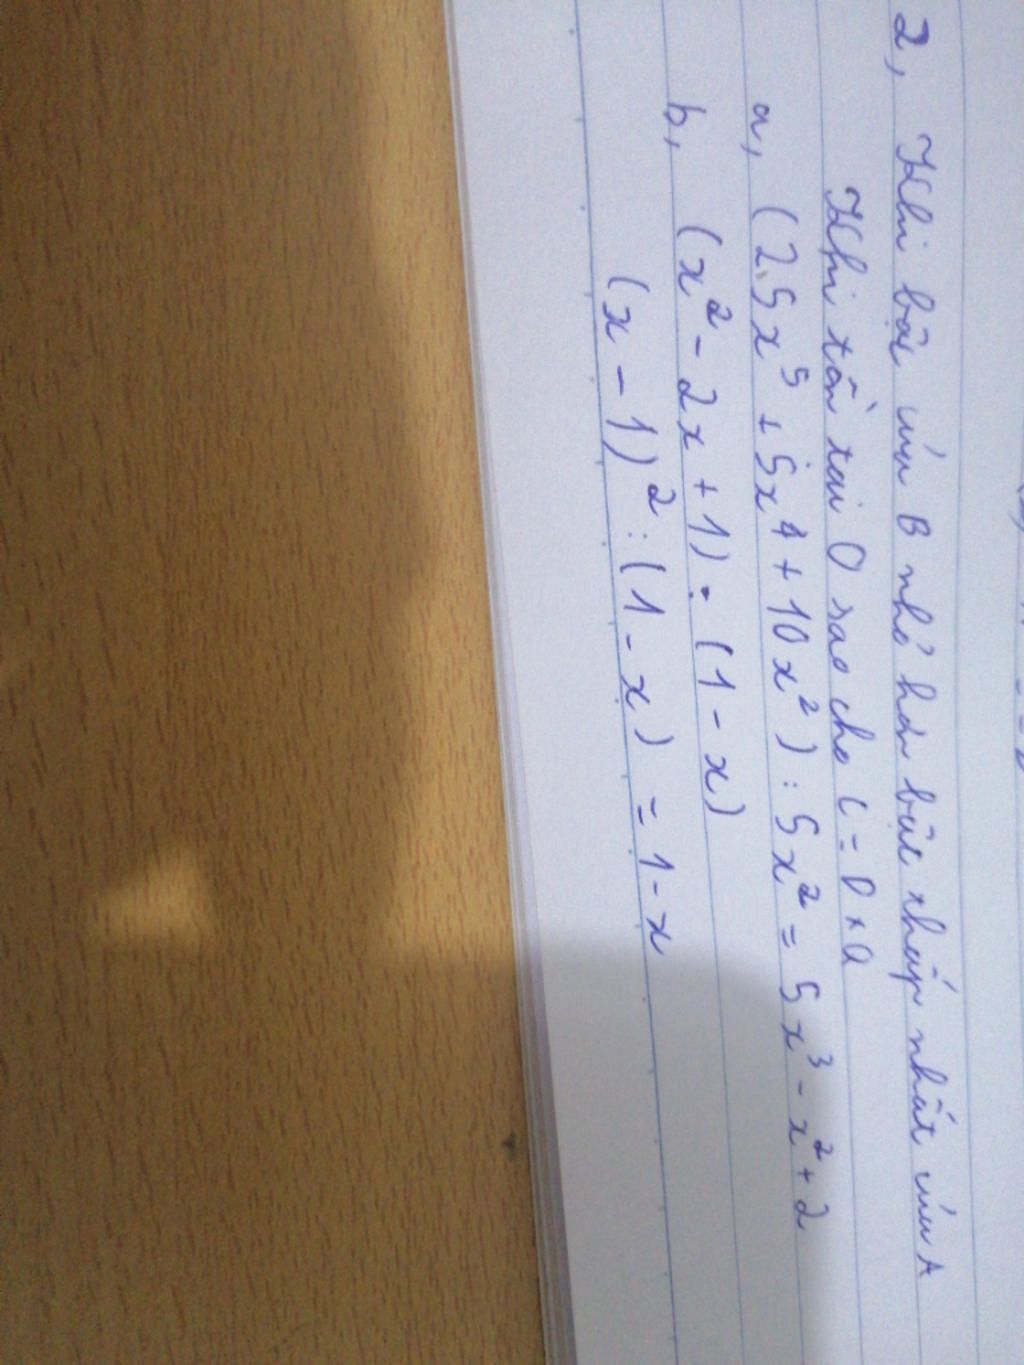 2, Khi bậc của B nhỏ hơn bậc thấp nhất của A
Khi tồn tại Q sao cho C = D × Q
a, (25x⁵ + 5x⁴ + 10x²) : 5x² = 5x³ - x² + 2
b, (x² - 2x + 1) : (1 - x)
(x - 1)² : (1 - x) = 1 - x